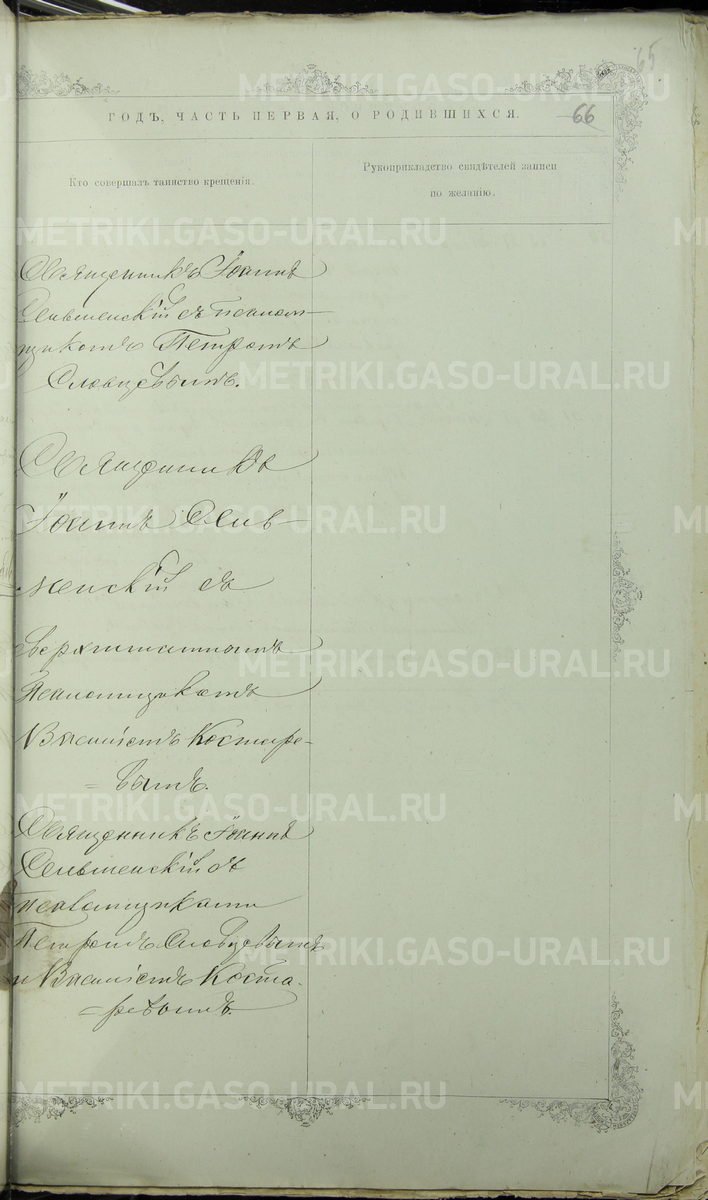 65
ГОДЪ, ЧАСТЬ ПЕРВАЯ, О РОДИВШИХСЯ.
66
Кто совершалъ таинство крещенія.
Рукоприкладство свидѣтелей записи
по желанію.
Священникъ Іоаннъ
Сельменскій съ псалом-
щикомъ Петромъ
Словцовымъ.
Священникъ
Іоаннъ Сель-
менскій съ
сверхштатнымъ
Псаломщикомъ
Василіемъ Костаре-
=вымъ.
Священникъ Іоаннъ
Сельменскій съ
псаломщиками
Петромъ Словцовымъ
и Василіемъ Коста-
=ревымъ.
METRIKI.GASO-URAL.RU